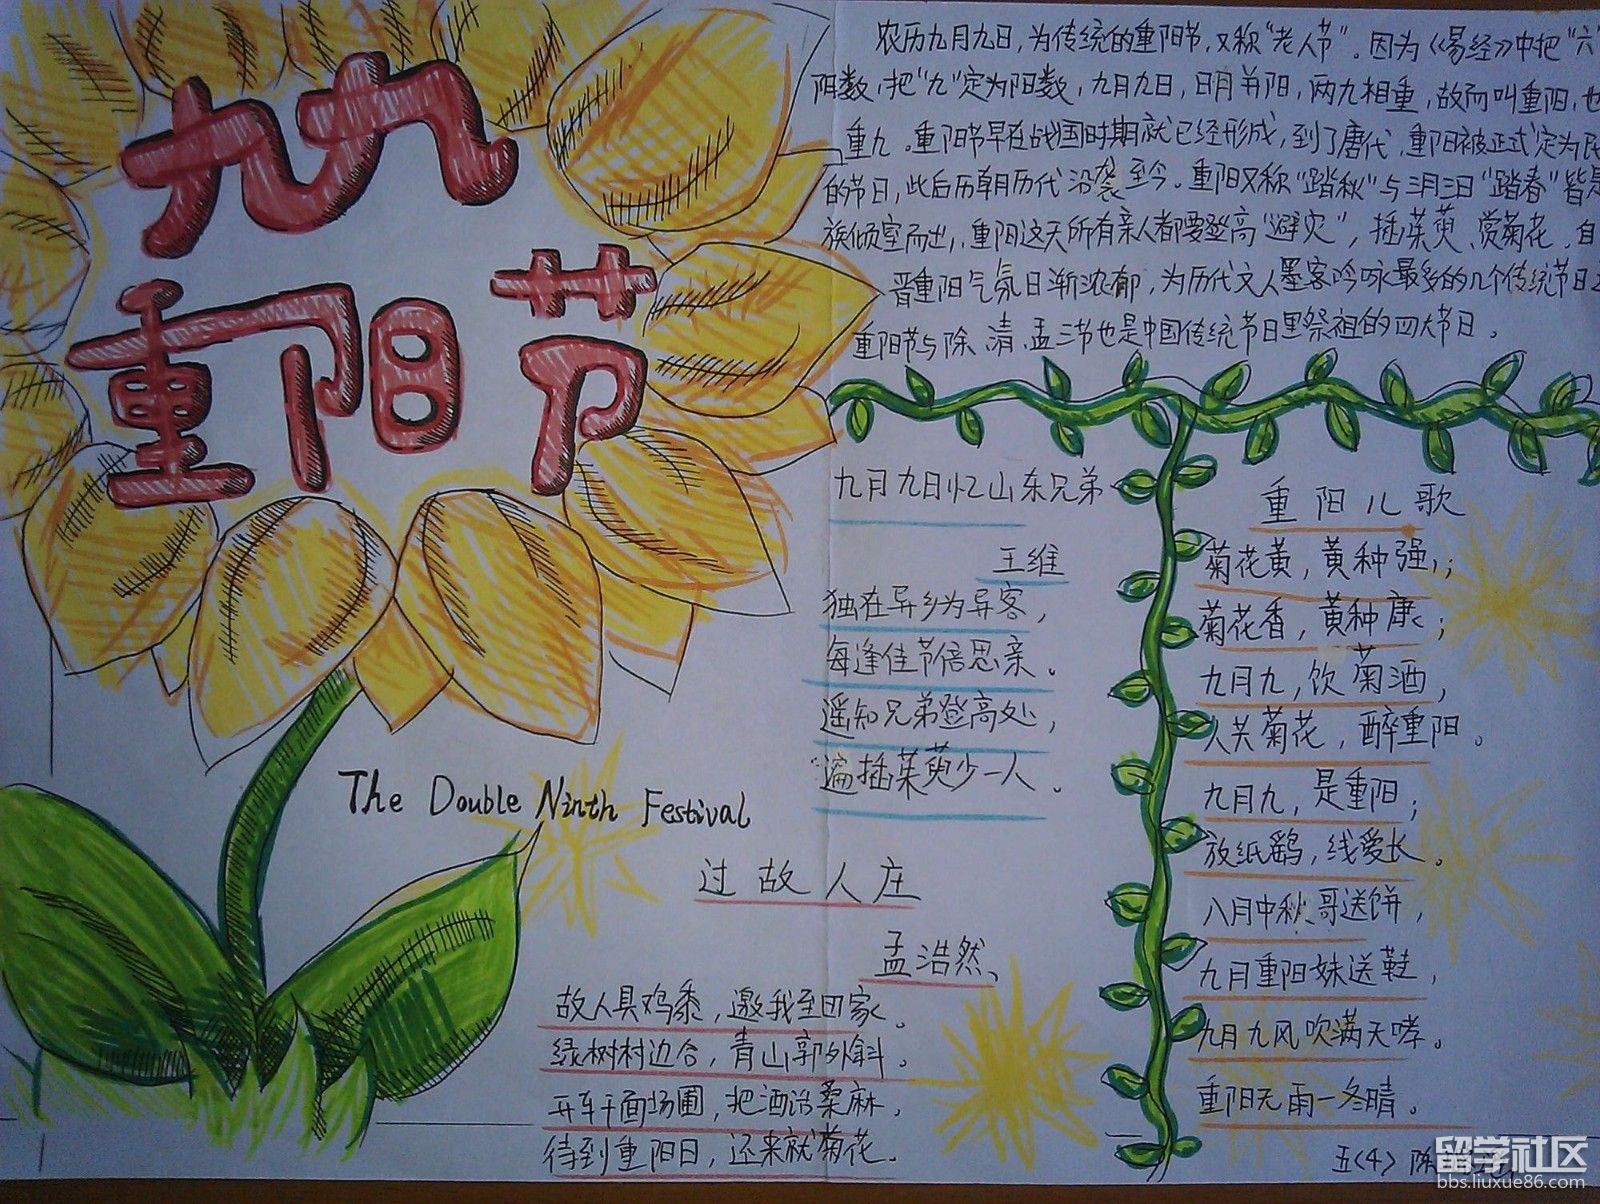 九九
重阳节
农历九月九日,为传统的重阳节,又称“老人节”。因为《易经》中把“六”
阴数,把“九”定为阳数,九月九日,日月并阳,两九相重,故而叫重阳,也
重九。重阳节早在战国时期就已经形成,到了唐代,重阳被正式定为民
的节日,此后历朝历代沿袭至今。重阳又称“踏秋”与三月三日“踏春”皆是
族倾室而出,重阳这天所有亲人都要登高“避灾”,插茱萸、赏菊花。自
晋重阳气氛日渐浓郁,为历代文人墨客吟咏最多的几个传统节日之
重阳节与除、清、孟三节也是中国传统节日里祭祖的四大节日。
九月九日忆山东兄弟
王维
独在异乡为异客,
每逢佳节倍思亲。
遥知兄弟登高处,
遍插茱萸少一人。
重阳儿歌
菊花黄,黄种强;
菊花香,黄种康;
九月九,饮菊酒,
人共菊花,醉重阳。
九月九,是重阳;
放纸鹞,线爱长。
八月中秋哥送饼,
九月重阳妹送鞋,
九月九风吹满天哮。
重阳无雨一冬晴。
The Double Ninth Festival
过故人庄
孟浩然
故人具鸡黍,邀我至田家。
绿树村边合,青山郭外斜。
开车干面场圃,把酒话桑麻。
待到重阳日,还来就菊花。
五〈4〉陈
留学社区
bbs.liuxue86.com